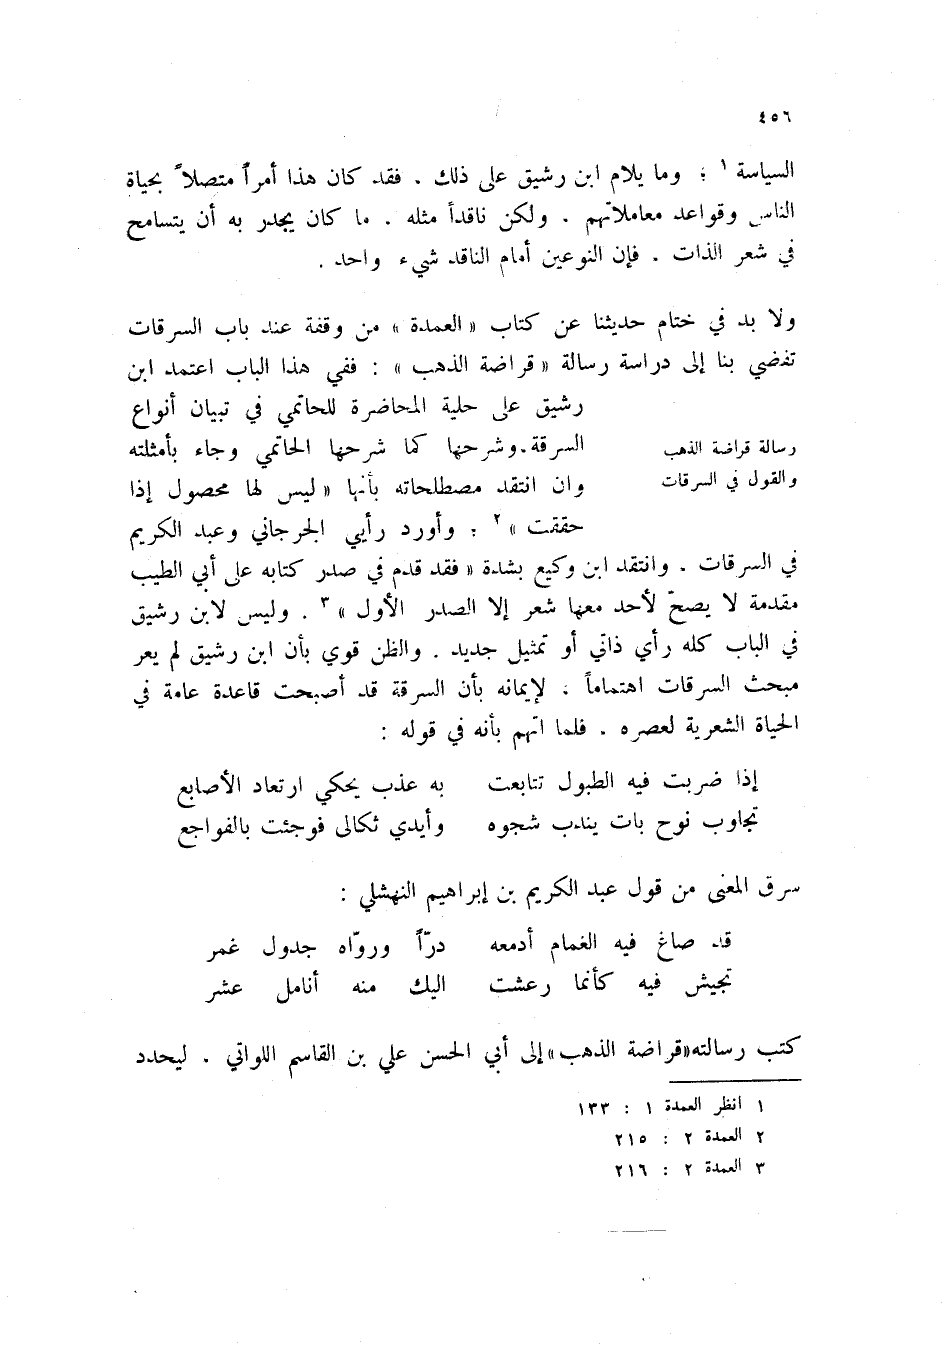 ٤٥٦
السياسة ١ ؛ وما يلام ابن رشيق على ذلك . فقد كان هذا أمراً متصلاً بحياة
الناس وقواعد معاملاتهم . ولكن ناقداً مثله . ما كان يجدر به أن يتسامح
في شعر الذات . فإن النوعين أمام الناقد شيء واحد .
ولا بد في ختام حديثنا عن كتاب « العمدة » من وقفة عند باب السرقات
تفضي بنا إلى دراسة رسالة « قراضة الذهب » : ففي هذا الباب اعتمد ابن
رشيق على حلية المحاضرة للحاتمي في تبيان أنواع
السرقة.وشرحها كما شرحها الحاتمي وجاء بأمثلته
وان انتقد مصطلحاته بأنها « ليس لها محصول إذا
حققت » ٢ ؛ وأورد رأيي الجرجاني وعبد الكريم
رسالة قراضة الذهب
والقول في السرقات
في السرقات . وانتقد ابن وكيع بشدة « فقد قدم في صدر كتابه على أبي الطيب
مقدمة لا يصحّ لأحد معها شعر إلا الصدر الأول » ٣ . وليس لابن رشيق
في الباب كله رأي ذاتي أو تمثيل جديد . والظن قوي بأن ابن رشيق لم يعر
مبحث السرقات اهتماماً ، لإيمانه بأن السرقة قد أصبحت قاعدة عامة في
الحياة الشعرية لعصره . فلما اتهم بأنه في قوله :
إذا ضربت فيه الطبول تتابعت به عذب يحكي ارتعاد الأصابع
تجاوب نوح بات يندب شجوه وأيدي ثكالى فوجئت بالفواجع
سرق المعنى من قول عبد الكريم بن إبراهيم النهشلي :
قد صاغ فيه الغمام أدمعه درّاً وروّاه جدول غمر
تجيش فيه كأنما رعشت اليك منه أنامل عشر
كتب رسالته«قراضة الذهب»إلى أبي الحسن علي بن القاسم اللواتي . ليحدد
١ انظر العمدة ١ : ١٣٣
٢ العمدة ٢ : ٢١٥
٣ العمدة ٢ : ٢١٦